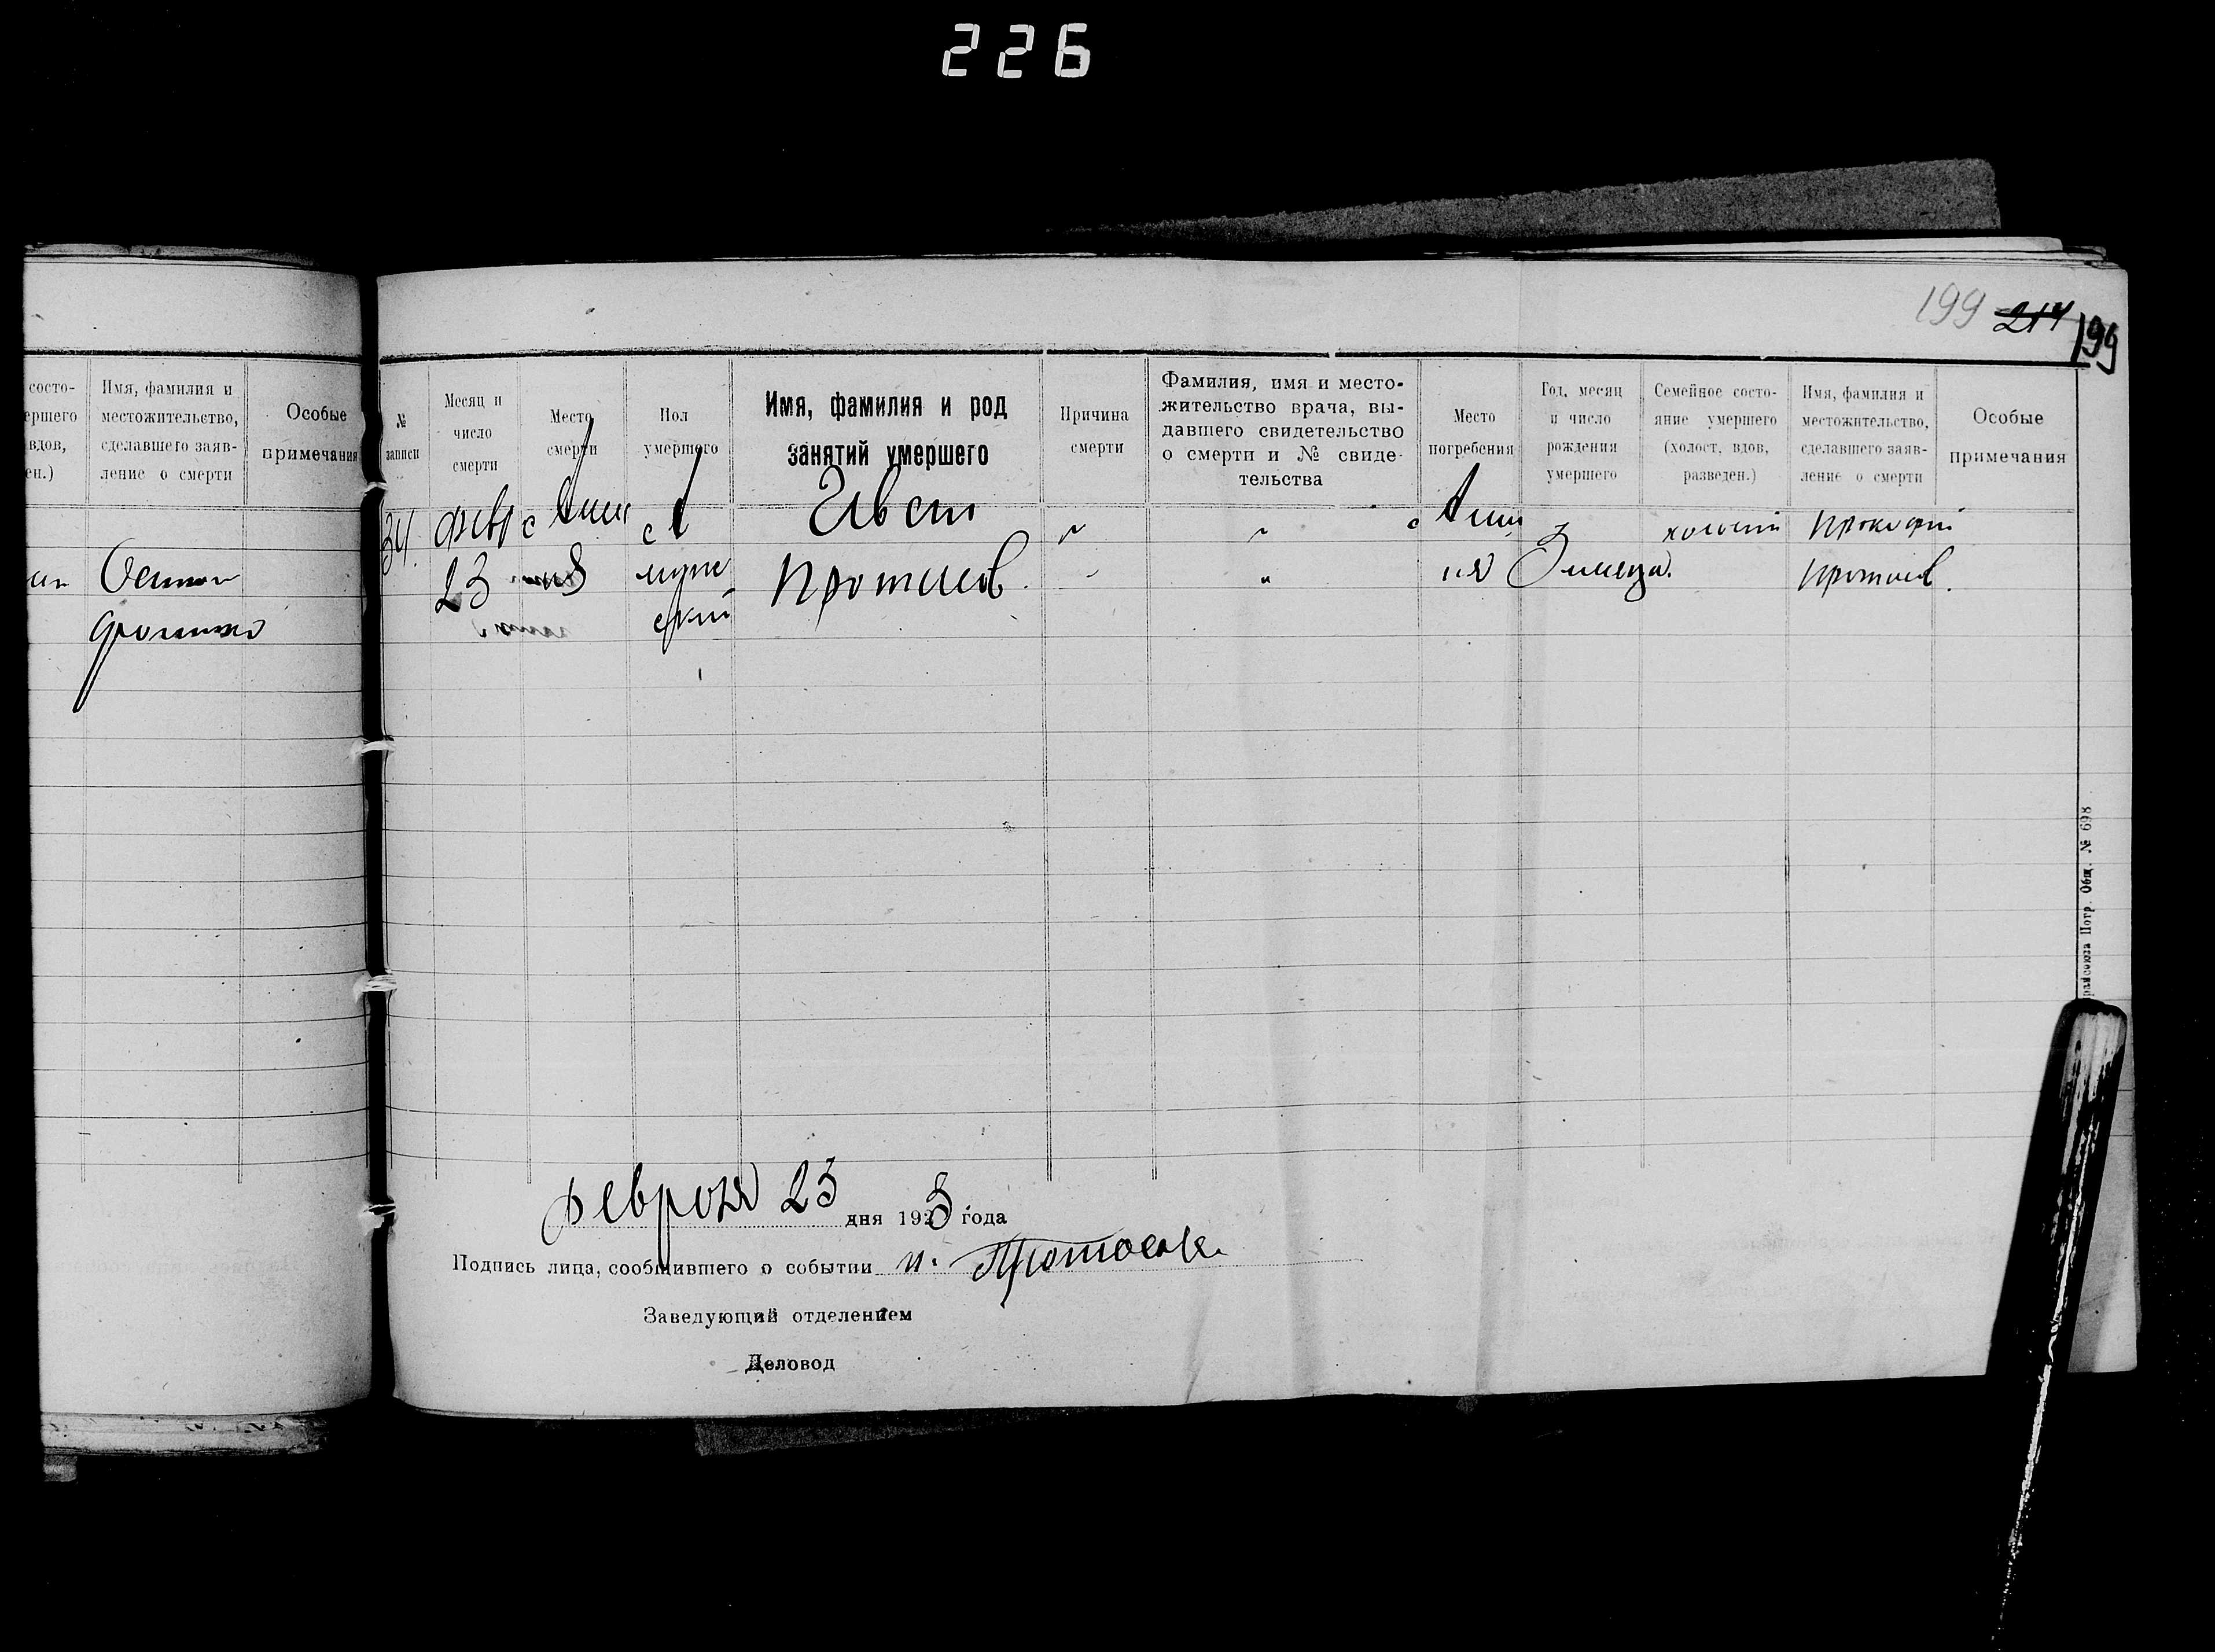 226
199 214 199
состо-
ершего
вдов,
ен.)
Имя, фамилия и
местожительство,
сделавшего заяв-
ление о смерти
Особые
примечания
№
записи
Месяц и
число
смерти
Место
смерти
Пол
умершего
Имя, фамилия и род
занятий умершего
Причина
смерти
Фамилия, имя и место-
жительство врача, вы-
давшего свидетельство
о смерти и № свиде-
тельства
Место
погребения
Год, месяц
и число
рождения
умершего
Семейное состо-
яние умершего
(холост, вдов,
разведен.)
Имя, фамилия и
местожительство,
сделавшего заяв-
ление о смерти
Особые
примечания
34. февр с холостой Прокофий
23 муж Протасов 3 месяца. Протасов.
ской
райсоюза Потр. Общ. № 698
февраля 23 дня 1923 года
Подпись лица, сообщившего о событии п. Протасов
Заведующий отделением
Деловод